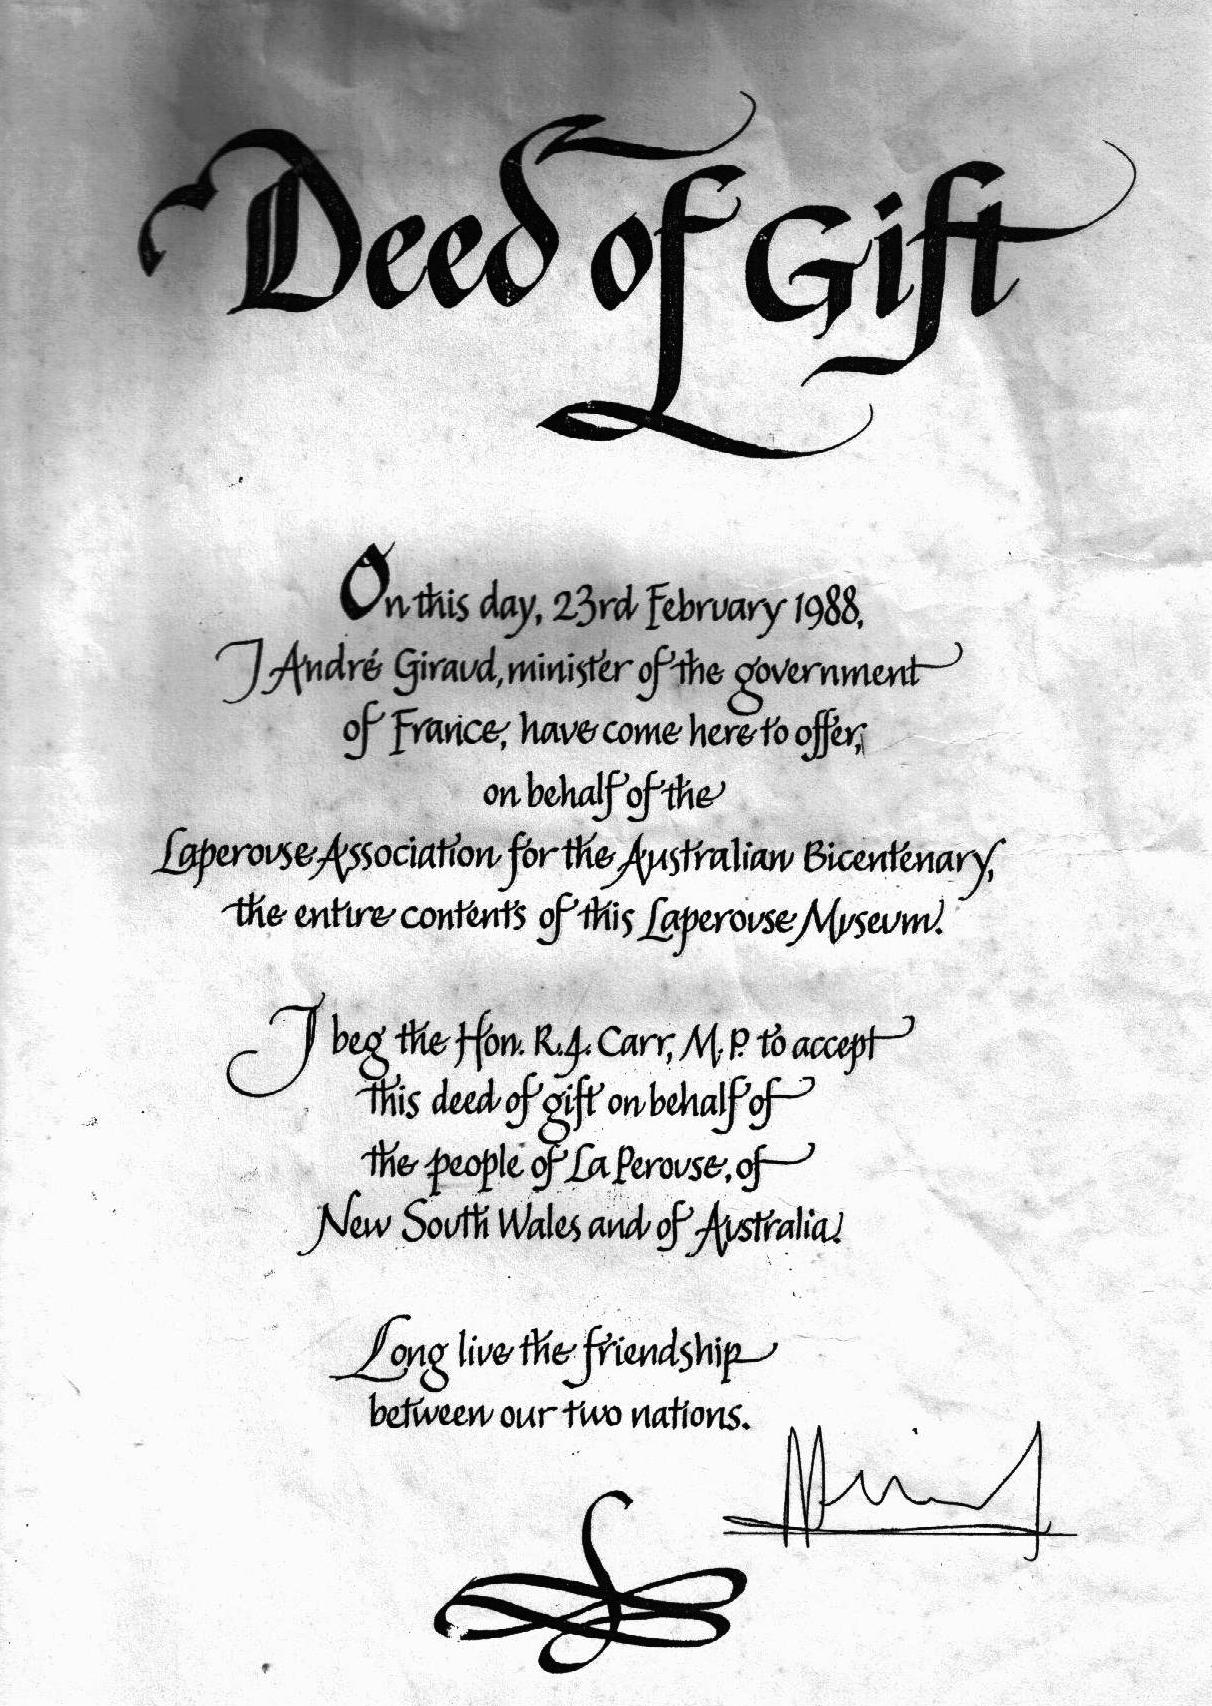 Deed of Gift
On this day, 23rd February 1988,
I André Giraud, minister of the government
of France, have come here to offer,
on behalf of the
Laperouse Association for the Australian Bicentenary,
the entire contents of this Laperouse Museum.
I beg the Hon. R.J. Carr, M.P. to accept
this deed of gift on behalf of
the people of La Perouse, of
New South Wales and of Australia.
Long live the friendship
between our two nations.